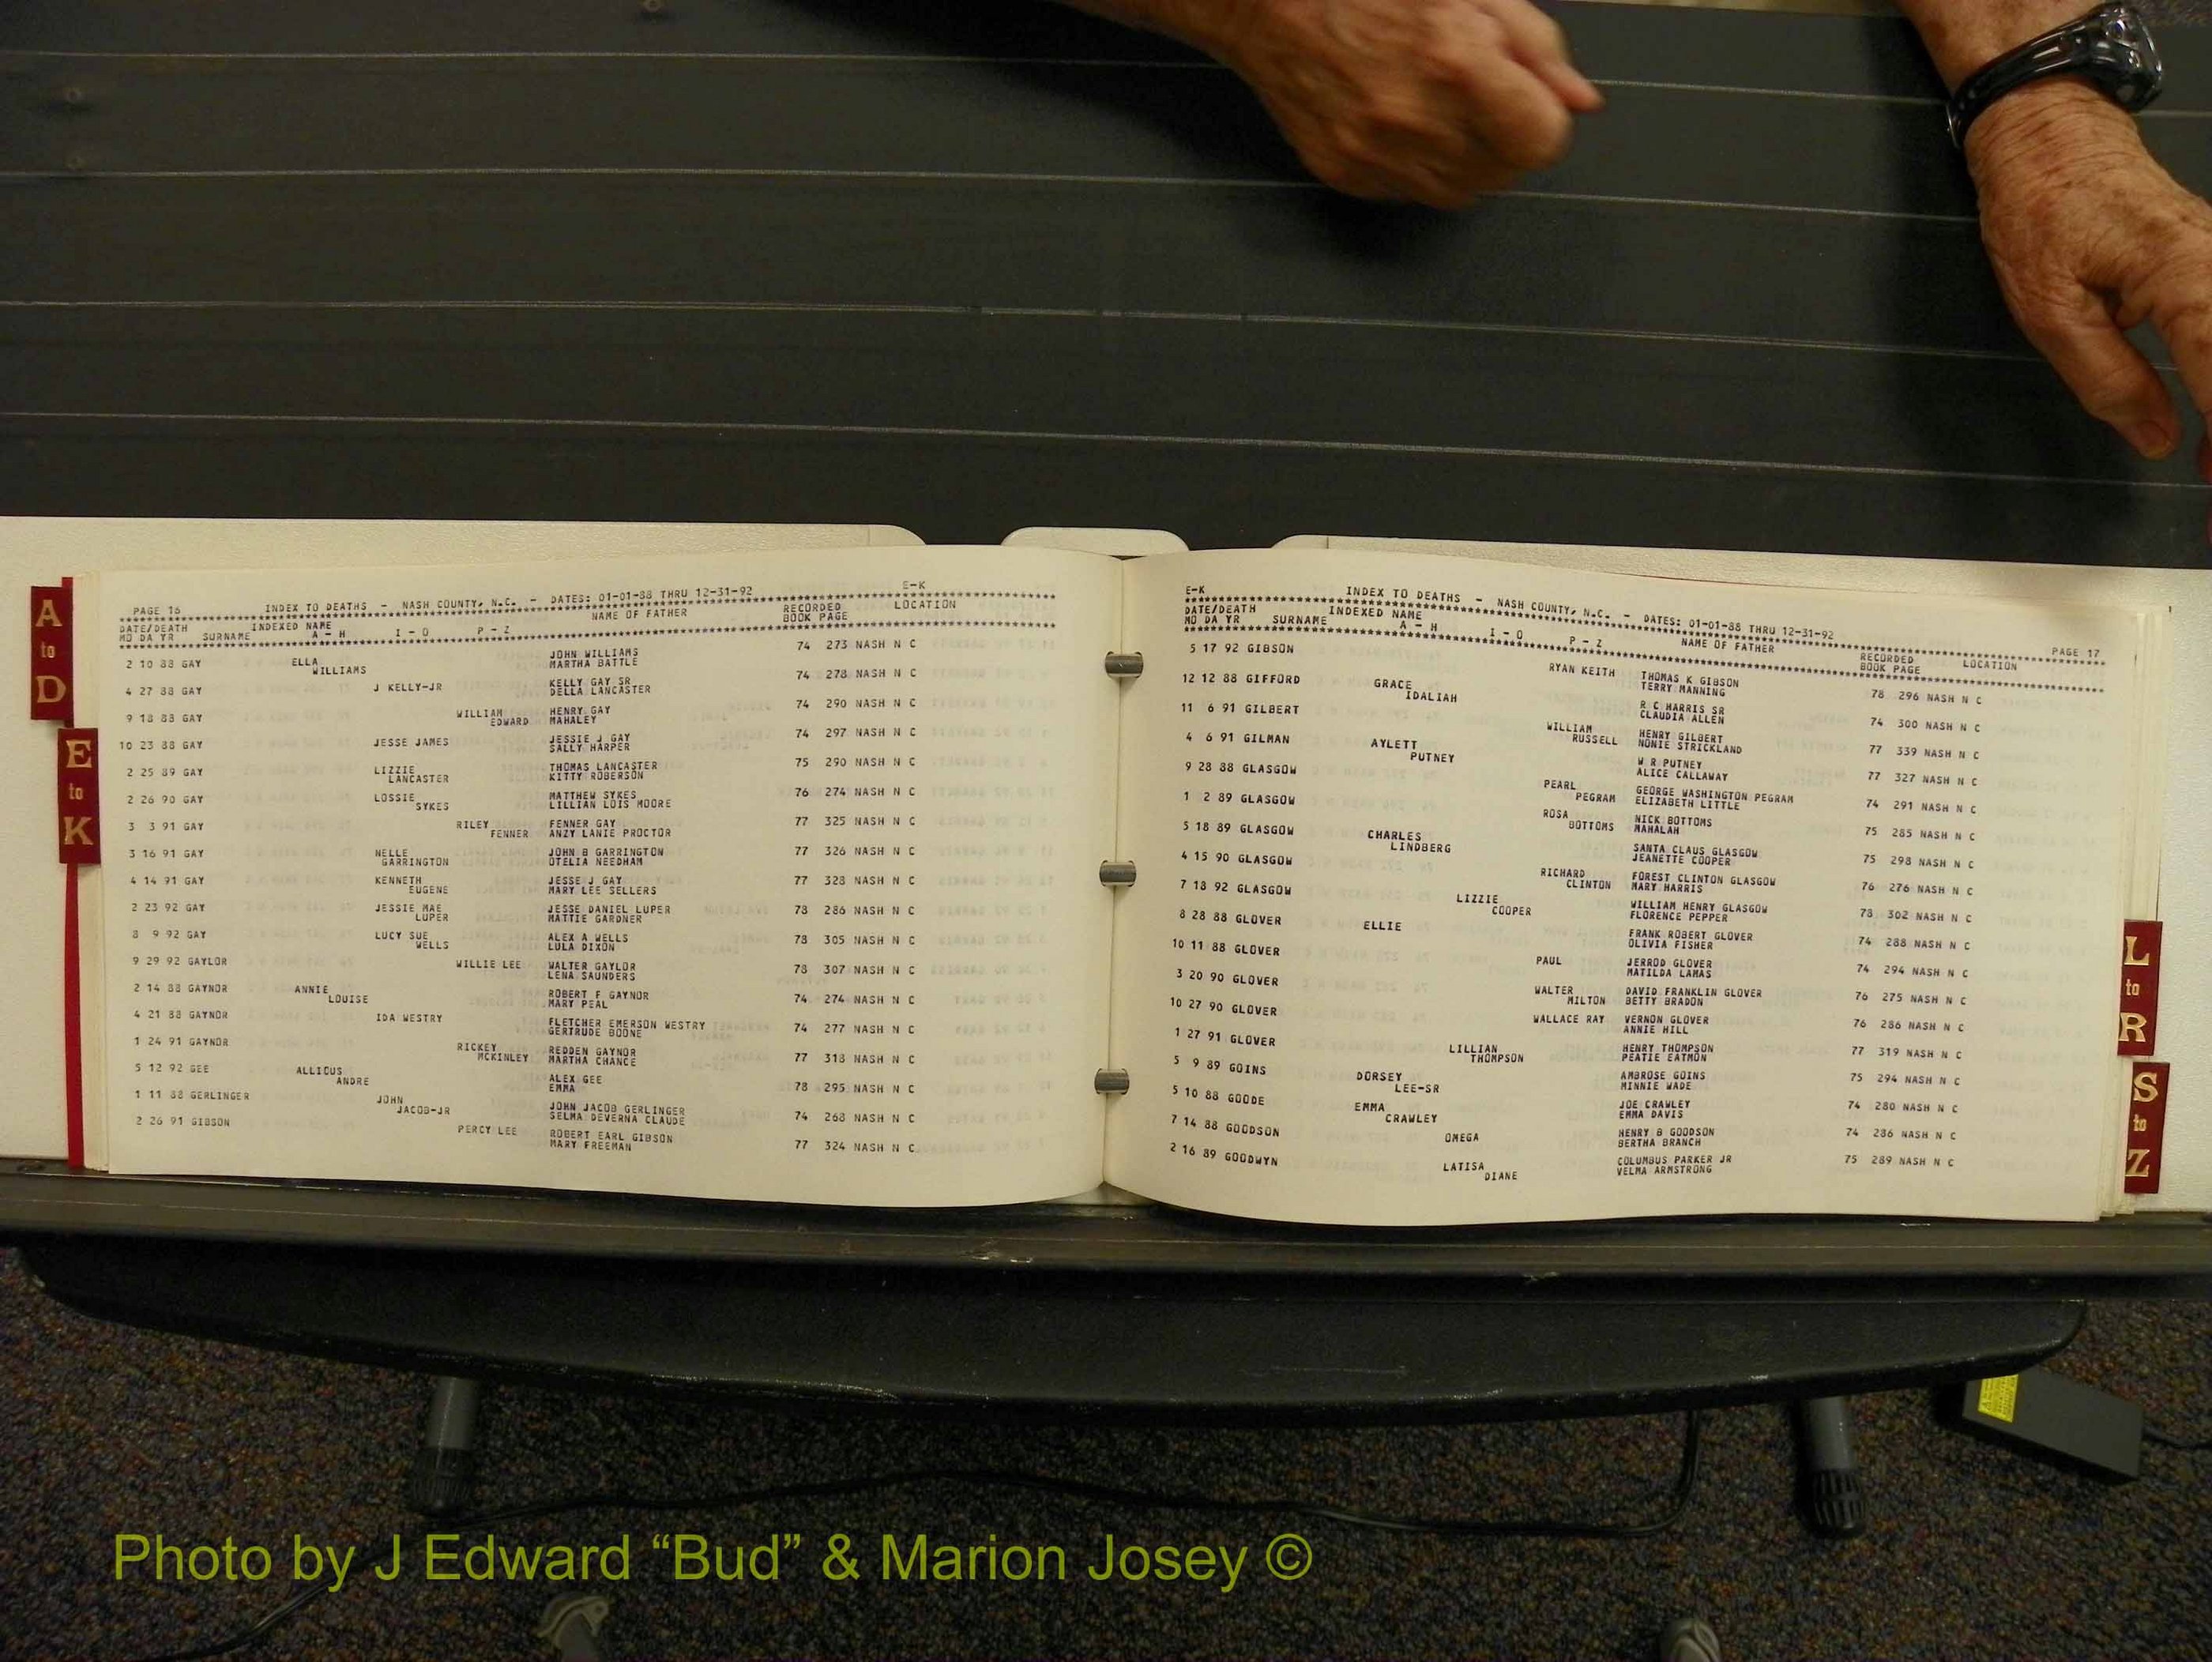 A
to
D
E
to
K
PAGE 16 INDEX TO DEATHS - NASH COUNTY, N.C. - DATES: 01-01-88 THRU 12-31-92 E-K
DATE/DEATH INDEXED NAME NAME OF FATHER RECORDED LOCATION
MO DA YR SURNAME A - H I - O P - Z BOOK PAGE
2 10 88 GAY ELLA JOHN WILLIAMS 74 273 NASH N C
WILLIAMS MARTHA BATTLE
4 27 88 GAY J KELLY-JR KELLY GAY SR 74 278 NASH N C
DELLA LANCASTER
9 18 88 GAY WILLIAM HENRY GAY 74 290 NASH N C
EDWARD MAHALEY
10 23 88 GAY JESSE JAMES JESSIE J GAY 74 297 NASH N C
SALLY HARPER
2 25 89 GAY LIZZIE THOMAS LANCASTER 75 290 NASH N C
LANCASTER KITTY ROBERSON
2 26 90 GAY LOSSIE MATTHEW SYKES 76 274 NASH N C
SYKES LILLIAN LOIS MOORE
3 3 91 GAY RILEY FENNER GAY 77 325 NASH N C
FENNER ANZY LANIE PROCTOR
3 16 91 GAY NELLE JOHN B GARRINGTON 77 326 NASH N C
GARRINGTON OTELIA NEEDHAM
4 14 91 GAY KENNETH JESSE J GAY 77 328 NASH N C
EUGENE MARY LEE SELLERS
2 23 92 GAY JESSIE MAE JESSE DANIEL LUPER 78 286 NASH N C
LUPER MATTIE GARDNER
8 9 92 GAY LUCY SUE ALEX A WELLS 78 305 NASH N C
WELLS LULA DIXON
9 29 92 GAYLOR WILLIE LEE WALTER GAYLOR 78 307 NASH N C
LENA SAUNDERS
2 14 88 GAYNOR ANNIE ROBERT F GAYNOR 74 274 NASH N C
LOUISE MARY PEAL
4 21 88 GAYNOR IDA WESTRY FLETCHER EMERSON WESTRY 74 277 NASH N C
GERTRUDE BOONE
1 24 91 GAYNOR RICKEY REDDEN GAYNOR 77 318 NASH N C
MCKINLEY MARTHA CHANCE
5 12 92 GEE ALLICUS ALEX GEE 78 295 NASH N C
ANDRE EMMA
1 11 88 GERLINGER JOHN JOHN JACOB GERLINGER 74 268 NASH N C
JACOB-JR SELMA DEVERNA CLAUDE
2 26 91 GIBSON PERCY LEE ROBERT EARL GIBSON 77 324 NASH N C
MARY FREEMAN
E-K INDEX TO DEATHS - NASH COUNTY, N.C. - DATES: 01-01-88 THRU 12-31-92 PAGE 17
DATE/DEATH INDEXED NAME NAME OF FATHER RECORDED LOCATION
MO DA YR SURNAME A - H I - O P - Z BOOK PAGE
5 17 92 GIBSON RYAN KEITH THOMAS K GIBSON 78 296 NASH N C
TERRY MANNING
12 12 88 GIFFORD GRACE R C HARRIS SR 74 300 NASH N C
IDALIAH CLAUDIA ALLEN
11 6 91 GILBERT WILLIAM HENRY GILBERT 77 339 NASH N C
RUSSELL NONIE STRICKLAND
4 6 91 GILMAN AYLETT W R PUTNEY 77 327 NASH N C
PUTNEY ALICE CALLAWAY
9 28 88 GLASGOW PEARL GEORGE WASHINGTON PEGRAM 74 291 NASH N C
PEGRAM ELIZABETH LITTLE
1 2 89 GLASGOW ROSA NICK BOTTOMS 75 285 NASH N C
BOTTOMS MAHALAH
5 18 89 GLASGOW CHARLES SANTA CLAUS GLASGOW 75 298 NASH N C
LINDBERG JEANETTE COOPER
4 15 90 GLASGOW RICHARD FOREST CLINTON GLASGOW 76 276 NASH N C
CLINTON MARY HARRIS
7 18 92 GLASGOW LIZZIE WILLIAM HENRY GLASGOW 78 302 NASH N C
COOPER FLORENCE PEPPER
8 28 88 GLOVER ELLIE FRANK ROBERT GLOVER 74 288 NASH N C
OLIVIA FISHER
10 11 88 GLOVER PAUL JERROD GLOVER 74 294 NASH N C
MATILDA LAMAS
3 20 90 GLOVER WALTER DAVID FRANKLIN GLOVER 76 275 NASH N C
MILTON BETTY BRADON
10 27 90 GLOVER WALLACE RAY VERNON GLOVER 76 286 NASH N C
ANNIE HILL
1 27 91 GLOVER LILLIAN HENRY THOMPSON 77 319 NASH N C
THOMPSON PEATIE EATMON
5 9 89 GOINS DORSEY AMBROSE GOINS 75 294 NASH N C
LEE-SR MINNIE WADE
5 10 88 GOODE EMMA JOE CRAWLEY 74 280 NASH N C
CRAWLEY EMMA DAVIS
7 14 88 GOODSON OMEGA HENRY B GOODSON 74 286 NASH N C
BERTHA BRANCH
2 16 89 GOODWYN LATISA COLUMBUS PARKER JR 75 289 NASH N C
DIANE VELMA ARMSTRONG
L
to
R
S
to
Z
Photo by J Edward “Bud” & Marion Josey ©